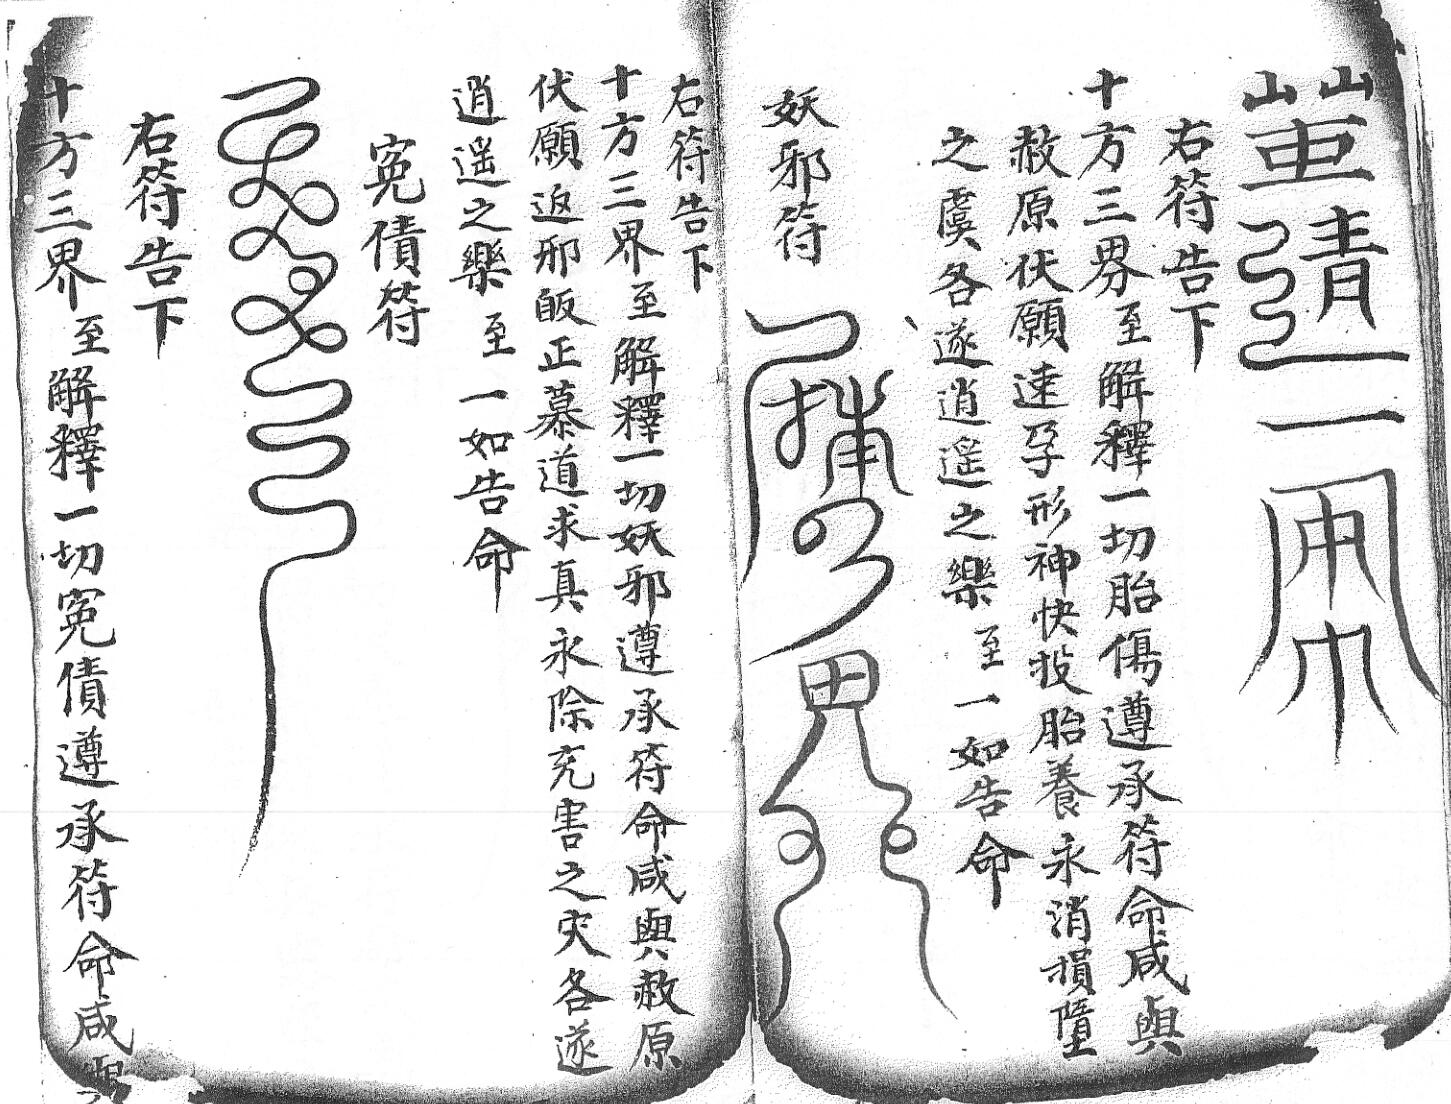 右符告下
十方三界至解釋一切胎傷遵承符命咸與
赦原伏願速孕形神快投胎養永消損墮
之虞各遂逍遥之樂至一如告命
妖邪符
右符告下
十方三界至解釋一切妖邪遵承符命咸與赦原
伏願返邪皈正慕道求真永除充害之灾各遂
逍遥之樂至一如告命
冤債符
右符告下
十方三界至解釋一切冤債遵承符命咸與